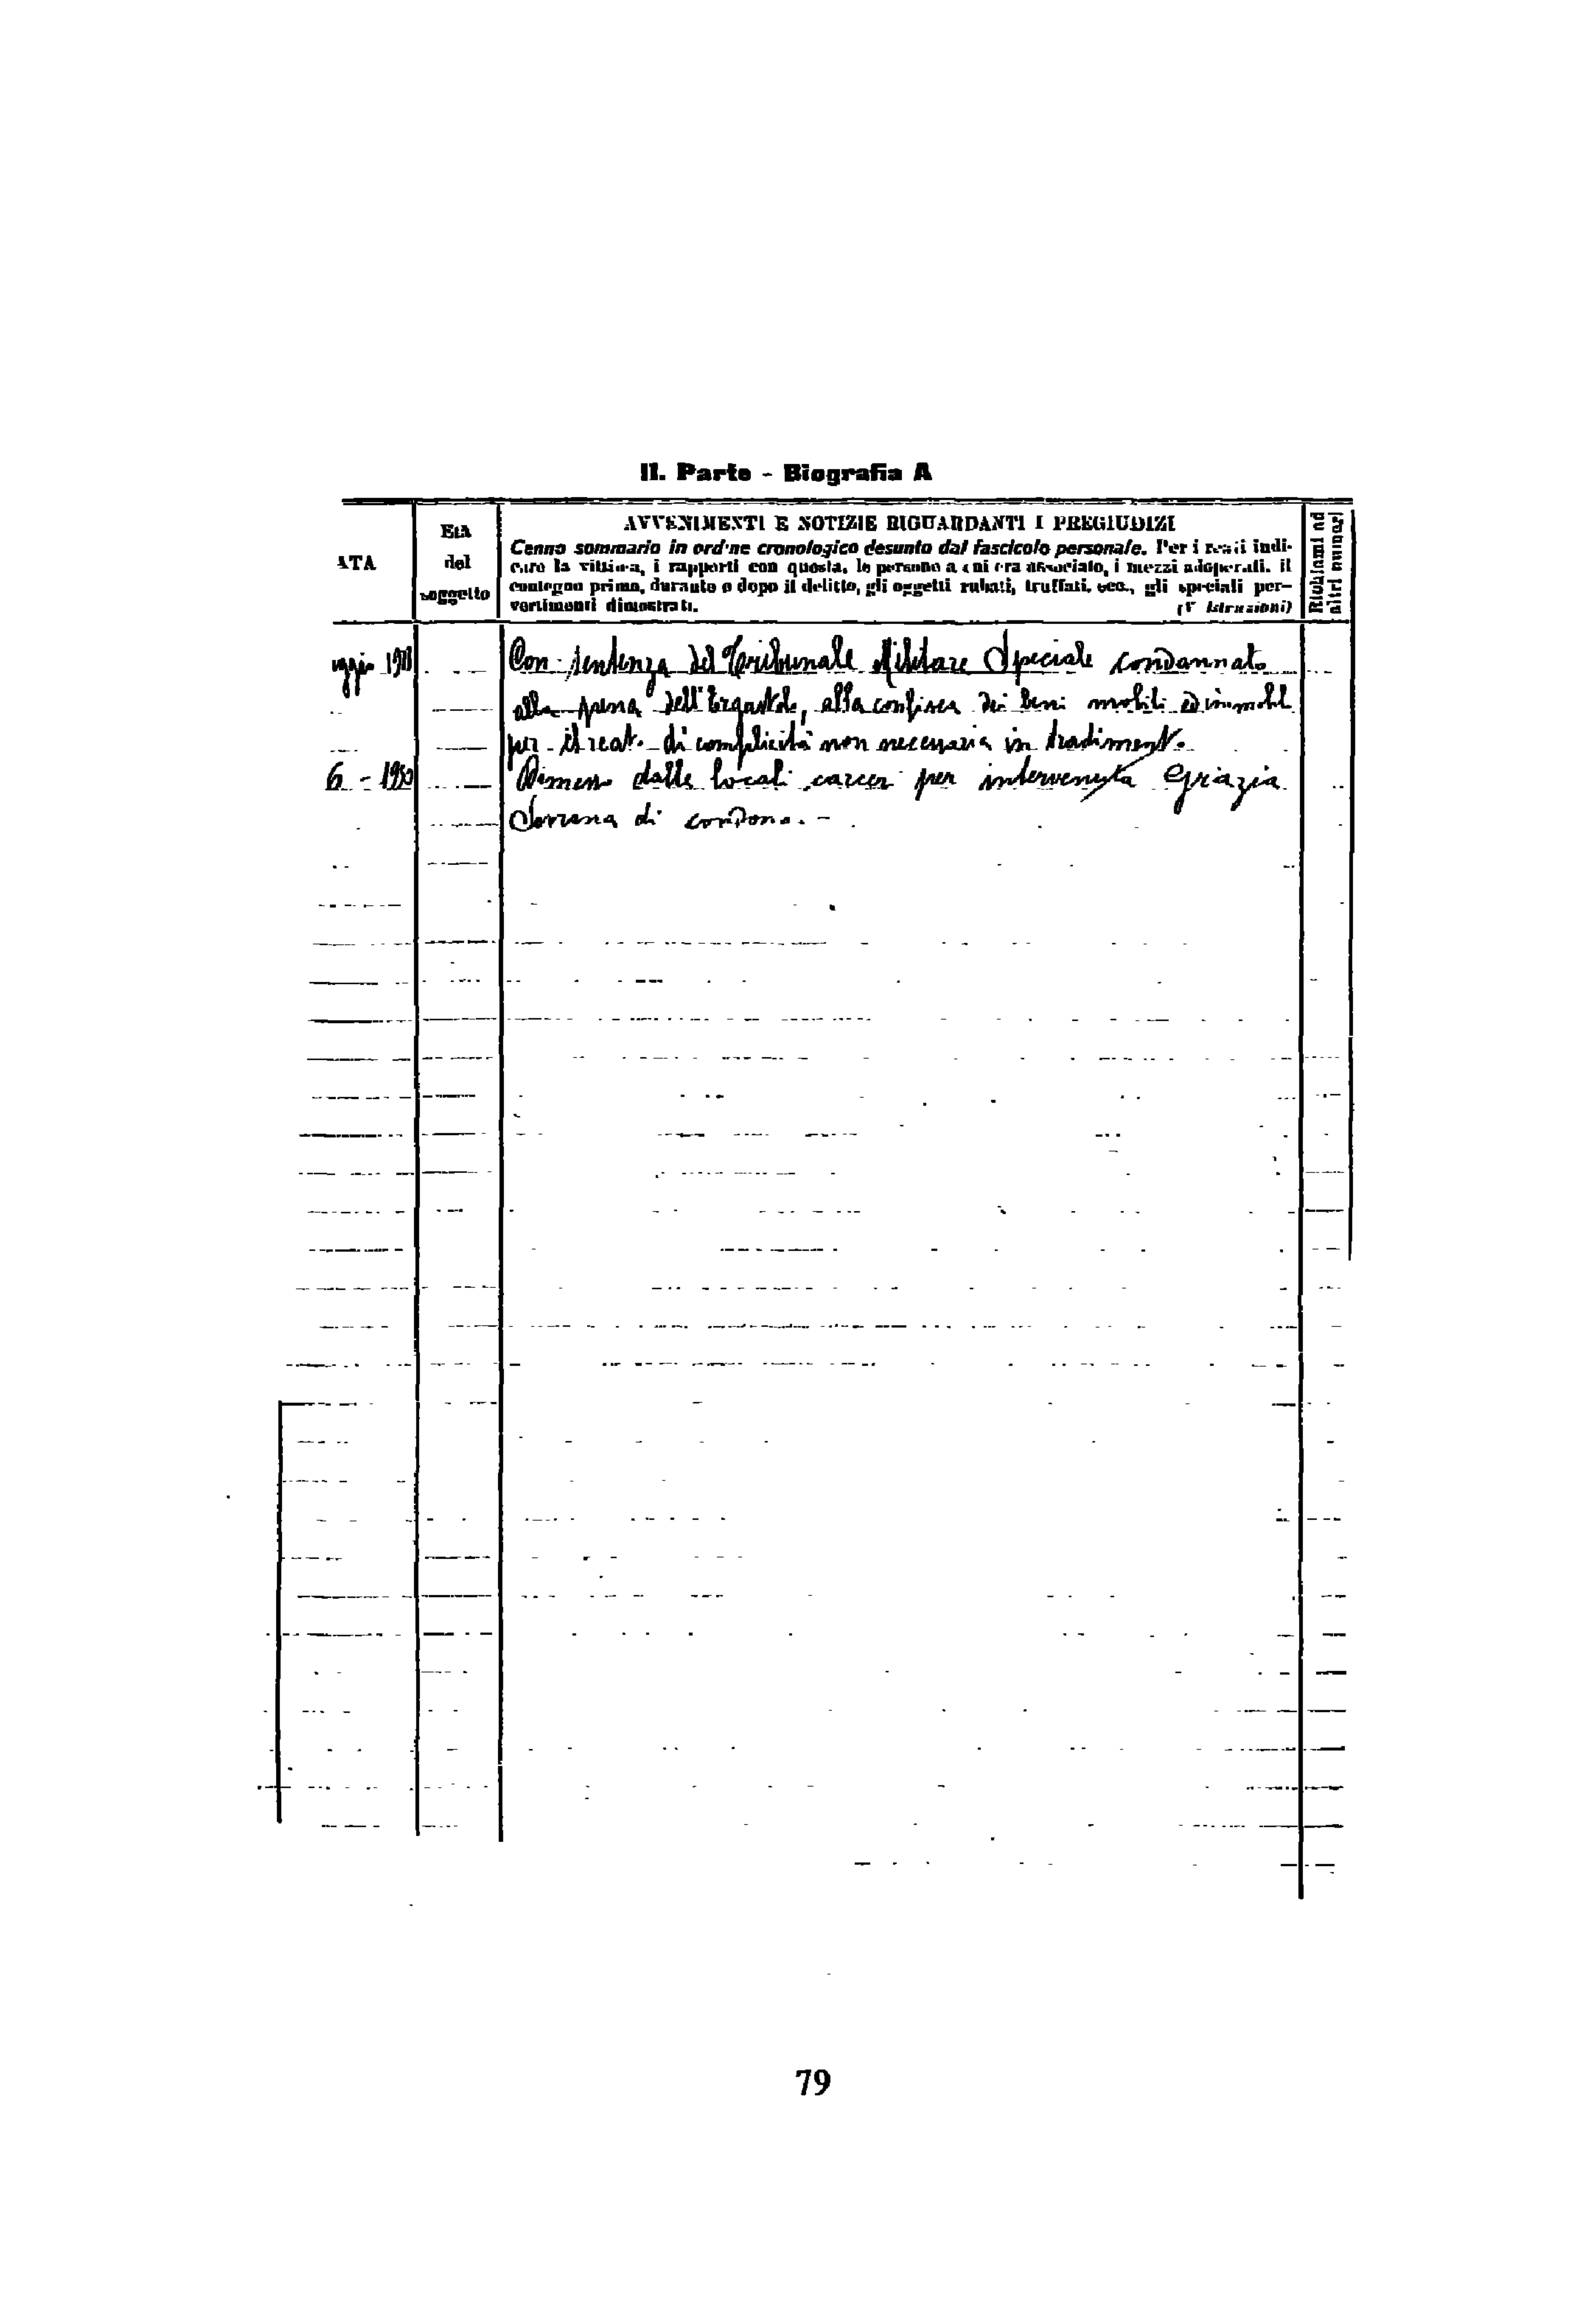 II. Parte - Biografia A
ATA
Età
del
soggetto
AVVENIMENTI E NOTIZIE RIGUARDANTI I PREGIUDIZI
Cenno sommario in ordine cronologico desunto dal fascicolo personale. Per i reati indi-
care la vittima, i rapporti con questa, le persone a cui era associato, i mezzi adoperati, il
contegno prima, durante o dopo il delitto, gli oggetti rubati, truffati, ecc., gli speciali per-
vertimenti dimostrati. (V Istruzioni)
Richiami ad
altri numeri
Con sentenza del Tribunale Militare Speciale condannato
alla pena dell'Ergastolo, alla confisca dei beni mobili ed immobil
per il reato di complicità non necessaria in tradimento.
6 - Dimesso dalle locali carceri per intervenuta Grazia
Sovrana di condono. -
79